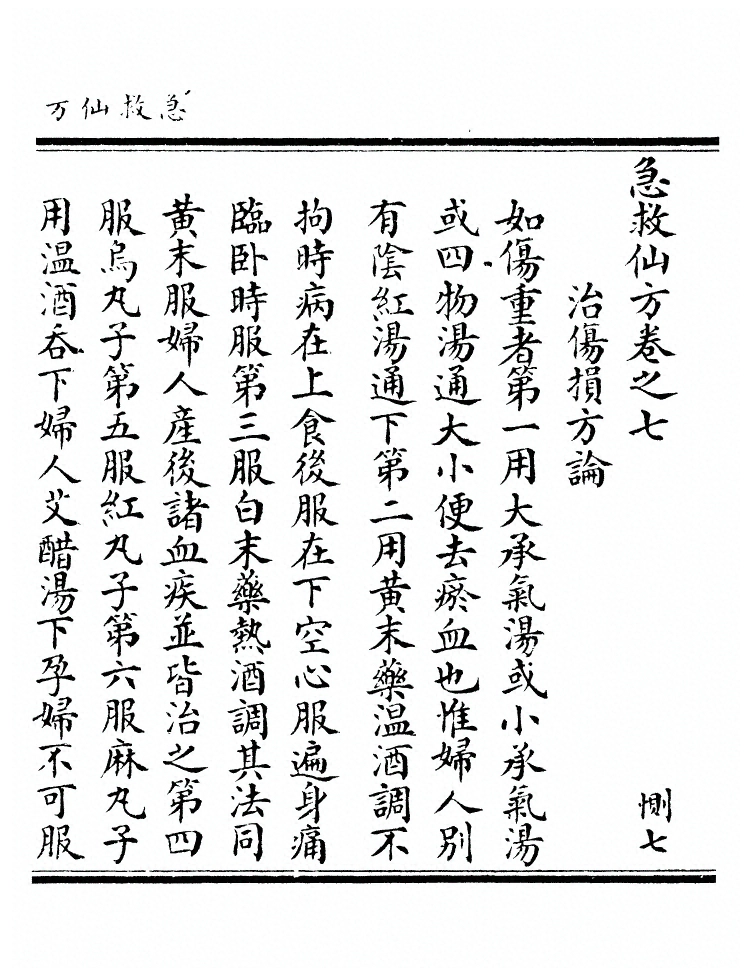 急救仙方
急救仙方卷之七 惻七
治傷損方論
如傷重者第一用大承氣湯或小承氣湯
或四物湯通大小便去瘀血也惟婦人別
有陰紅湯通下第二用黄末藥温酒調不
拘時病在上食後服在下空心服遍身痛
臨卧時服第三服白末藥熱酒調其法同
黄末服婦人産後諸血疾並皆治之第四
服烏丸子第五服紅丸子第六服麻丸子
用温酒吞下婦人艾醋湯下孕婦不可服